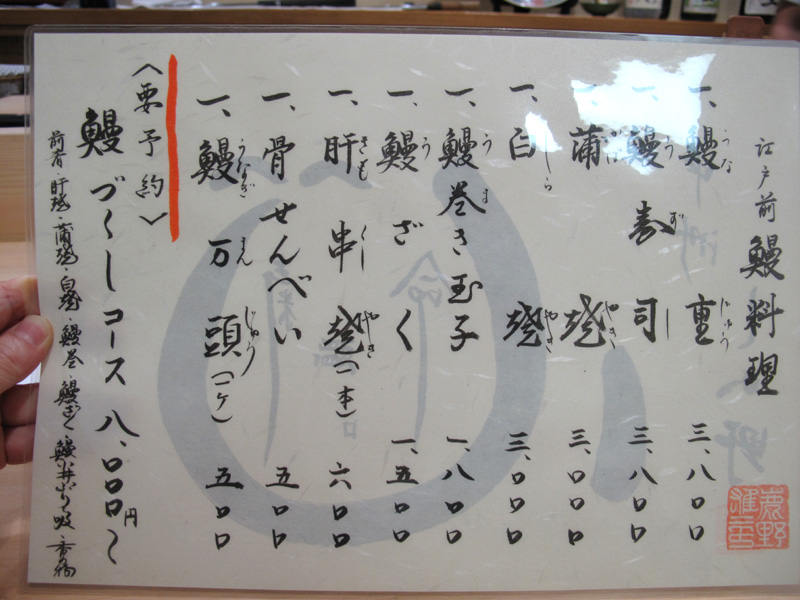 江戸前 鰻料理
一、鰻重 三、八〇〇
一、鰻寿司 三、八〇〇
一、蒲焼 三、〇〇〇
一、白焼 三、〇〇〇
一、鰻巻き玉子 一、八〇〇
一、鰻ざく 一、五〇〇
一、肝串焼(一本) 六〇〇
一、骨せんべい 五〇〇
一、鰻万頭(一ケ) 五〇〇
〈要予約〉
鰻づくしコース 八、〇〇〇円〜
前肴・肝焼・蒲焼・白焼・鰻巻・鰻ざく・鰻丼